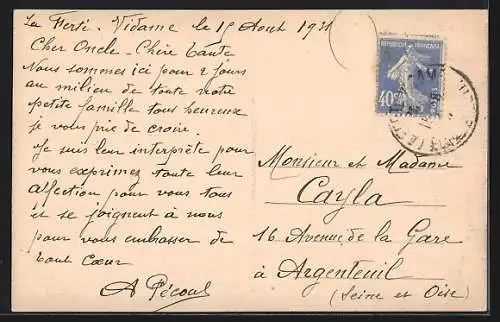 La Ferté-Vidame le 15 Aout 1931
Cher Oncle - Chère Tante
Nous sommes ici pour 2 jours
au milieu de toute notre
petite famille tous heureux
je vous prie de croire.
Je suis leur interprète pour
vous exprimer toute leur
affection pour vous tous
et se joignent à nous
pour vous embrasser de
tout Cœur
A Pécoul
REPUBLIQUE FRANÇAISE
40c
Monsieur et Madame
Cayla
16 Avenue de la Gare
à Argenteuil
(Seine et Oise)